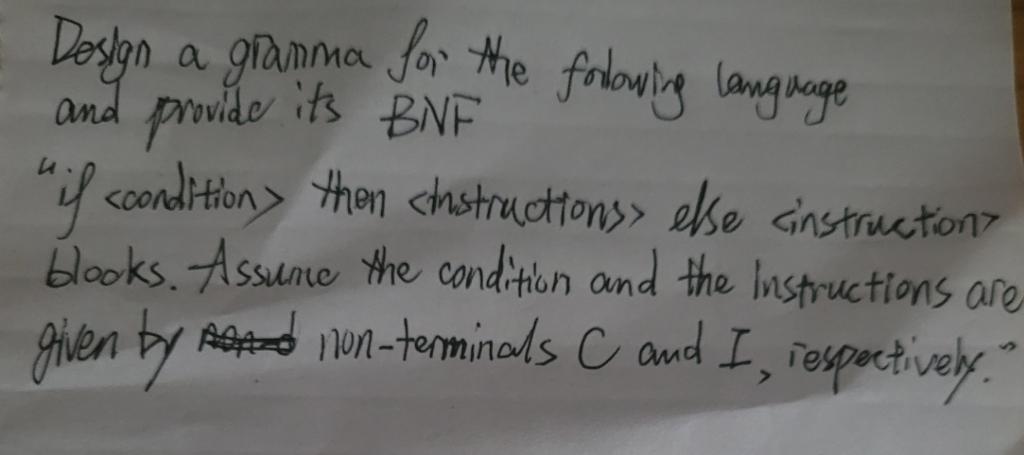 Design a gramma for the following language
and provide its BNF
"if <condition> then <instructions> else <instruction>
blocks. Assume the condition and the instructions are
given by non-terminals C and I, respectively."